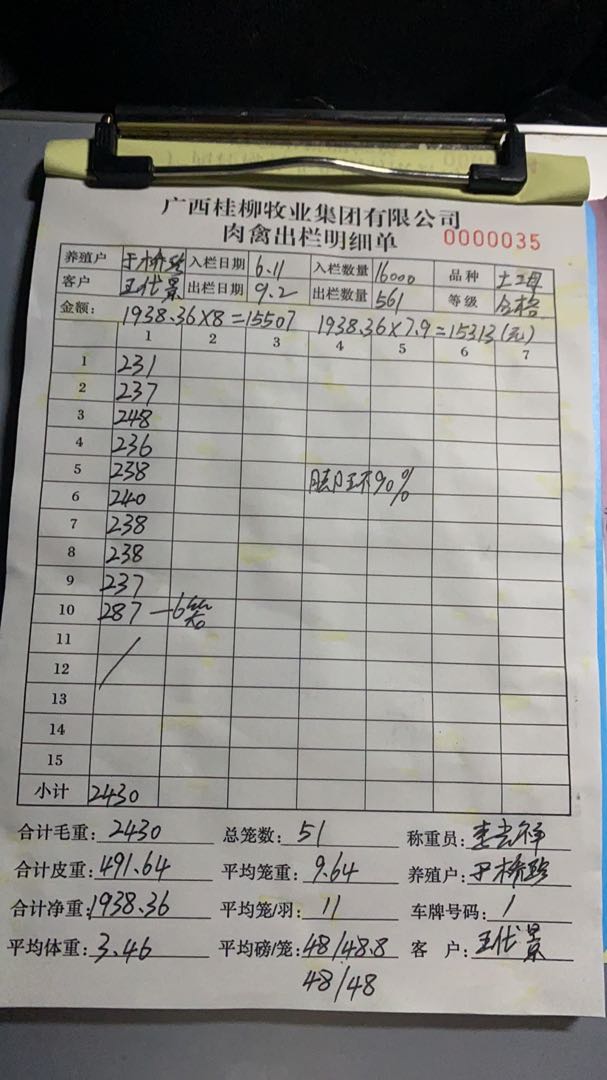 广西桂柳牧业集团有限公司
肉禽出栏明细单 0000035
养殖户 于桥珍 入栏日期 6.11 入栏数量 16000 品种 土工母
客户 王代景 出栏日期 9.2 出栏数量 561 等级 合格
金额: 1938.36×8=15507 1938.36×7.9=15313(元)
1 2 3 4 5 6 7
1 231
2 237
3 248
4 236
5 238 90%
6 240
7 238
8 238
9 237
10 287 —6笼
11
12
13
14
15
小计 2430
合计毛重: 2430 总笼数: 51 称重员:
合计皮重: 491.64 平均笼重: 9.64 养殖户: 于桥珍
合计净重: 1938.36 平均笼/羽: 11 车牌号码: 1
平均体重: 3.46 平均磅/笼: 48/48.8 客 户: 王代景
48/48